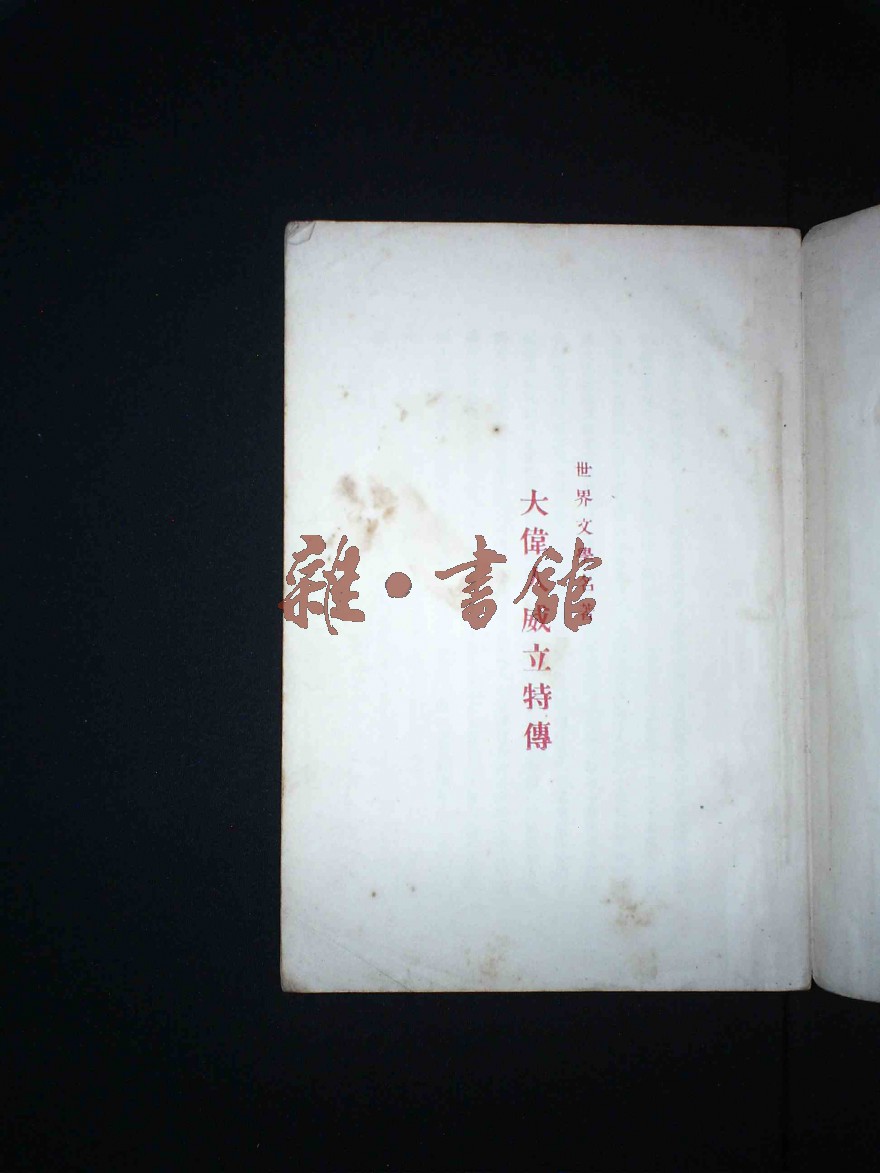 世界文學名著
大偉人威立特傳
雜·書館